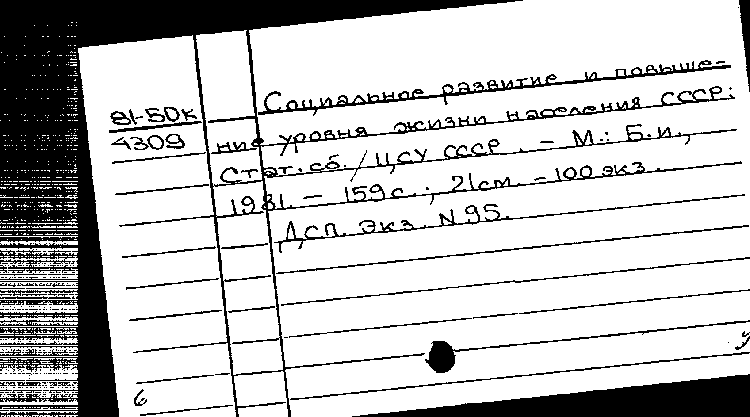 81-50к Социальное развитие и повыше-
4309 ние уровня жизни населения СССР:
Стат. сб. / ЦСУ СССР. - М.: Б.и.,
1981. - 159 с.; 21 см. - 100 экз.
ДСП. Экз. N 95.
6